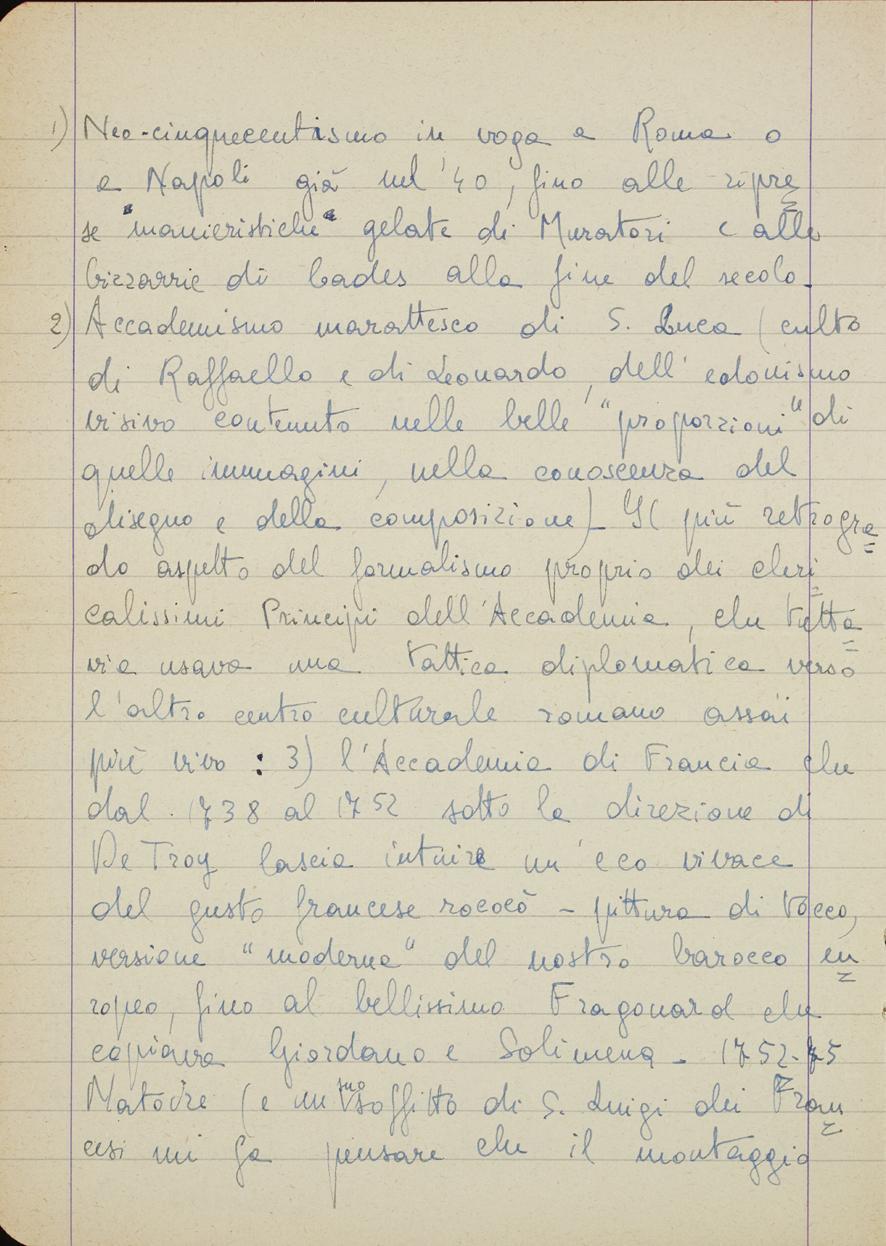 1) Neo-cinquecentismo in voga a Roma o
a Napoli già nel '40, fino alle ripre
se "manieristiche" gelate di Muratori e alle
bizzarrie di Cades alla fine del secolo.
2) Accademismo marattesco di S. Luca (culto
di Raffaello e di Leonardo, dell'edonismo
visivo contenuto nelle belle "proporzioni" di
quelle immagini, nella conoscenza del
disegno e della composizione) Il più retrogra
do aspetto del formalismo proprio dei cleri
calissimi Principi dell'Accademia, che tutta
via usava una tattica diplomatica verso
l'altro centro culturale romano assai
più vivo : 3) l'Accademia di Francia che
dal 1738 al 1752 sotto la direzione di
De Troy lascia intuire un'eco vivace
del gusto francese rococò - pittura di tocco,
versione "moderna" del nostro barocco eu
ropeo, fino al bellissimo Fragonard che
copiava Giordano e Solimena - 1752-75
Natoire (e un suo soffitto di S. Luigi dei Fran
cesi mi fa pensare che il montaggio